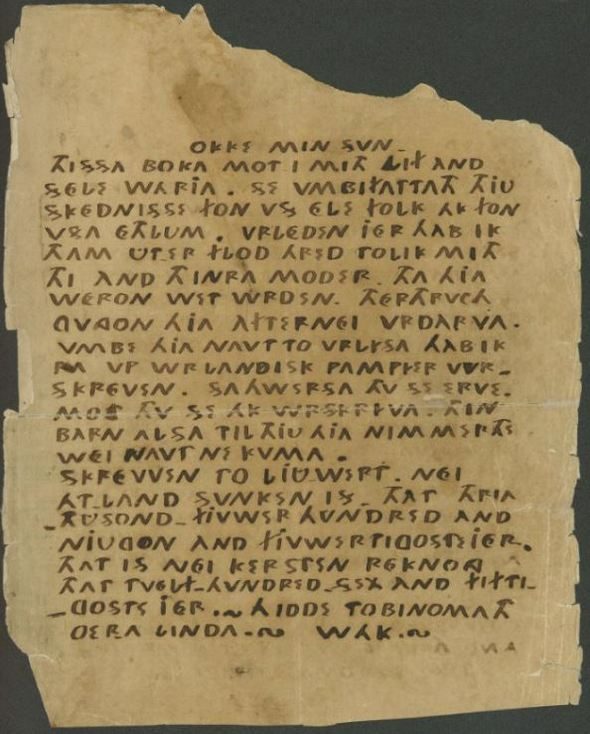 OKKE MIN SVN_
THISSA BOKA MOT I MITH LIF AND
SELE WARJA. SE VMBIFATTATH THJU
SKEDNISSE FON VS ELE FOLK AK FON
VSA ETHLUM. VRLEDEN JER HAB IK
THAM UTER FLOD HRED TOLIK MITH
THI AND THINRA MODER. THA HJA
WERON WET WRDEN. THERTHRVCH
GVNGON HJA AFTERNEI VRDARVA.
VMBE HJA NAVT TO VRLJSA HAB IK
RA VP WRLANDISK PAMPJER WR-
SKREVEN. SAHWERSA THV SE ERVE.
MOST THV SE AK WRSKRIVA. THIN
BARN ALSA TIL THJU HJA NIMMERTHE
WEI NAVT NE KUMA.
SKREVVEN TO LJUWERT. NEI
ATLAND SUNKEN IS_ THAT THRIA
_THUSOND_ FJUWER HVNDRED AND
NJUGON AND FJUWERTIGOSTE JER.
THAT IS NEI KERSTEN REKNONG
THAT TVELF_HVNDRED_SEX AND FIFTI_
_GOSTE JER.~ HIDDE TOBINOMATH
OERA LINDA.~ WAK.~